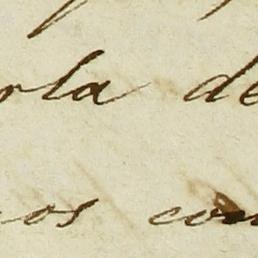 rla de
os con